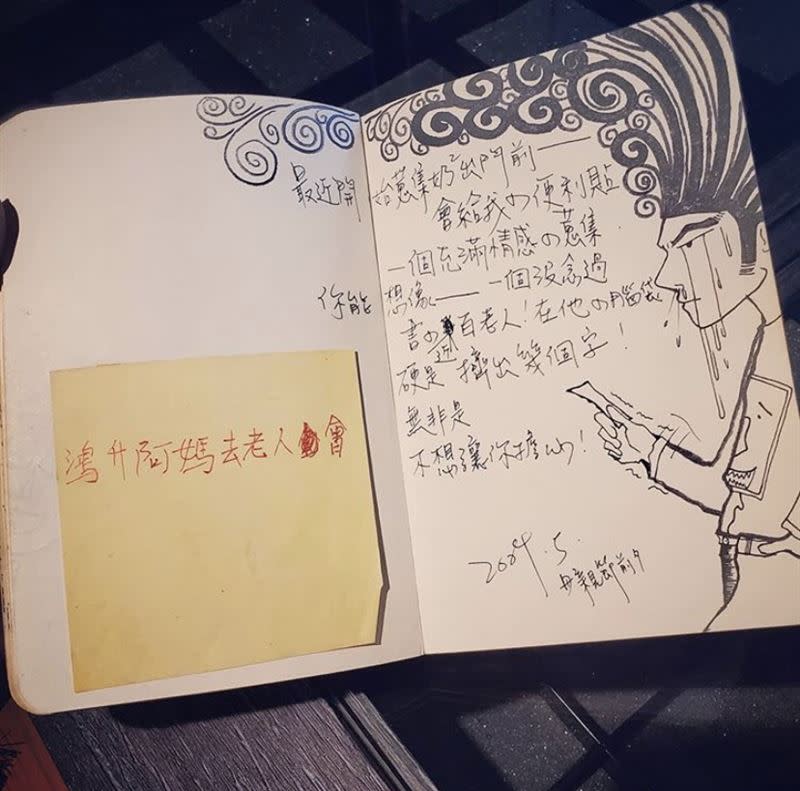 最近開始蒐集奶²出門前——
會給我の便利貼
一個充滿情感の蒐集.
你能想像——一個沒念過
書の近百老人!在他の腦袋
硬是擠出幾個字!
無非是
不想讓你擔心!
2004.5.
母親節前夕
鴻升阿媽去老人會